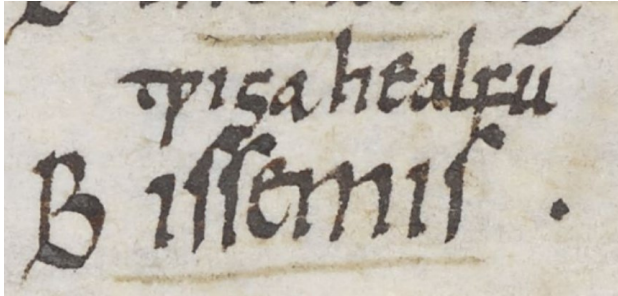 tƿiga healfū
Biſſemiſ.